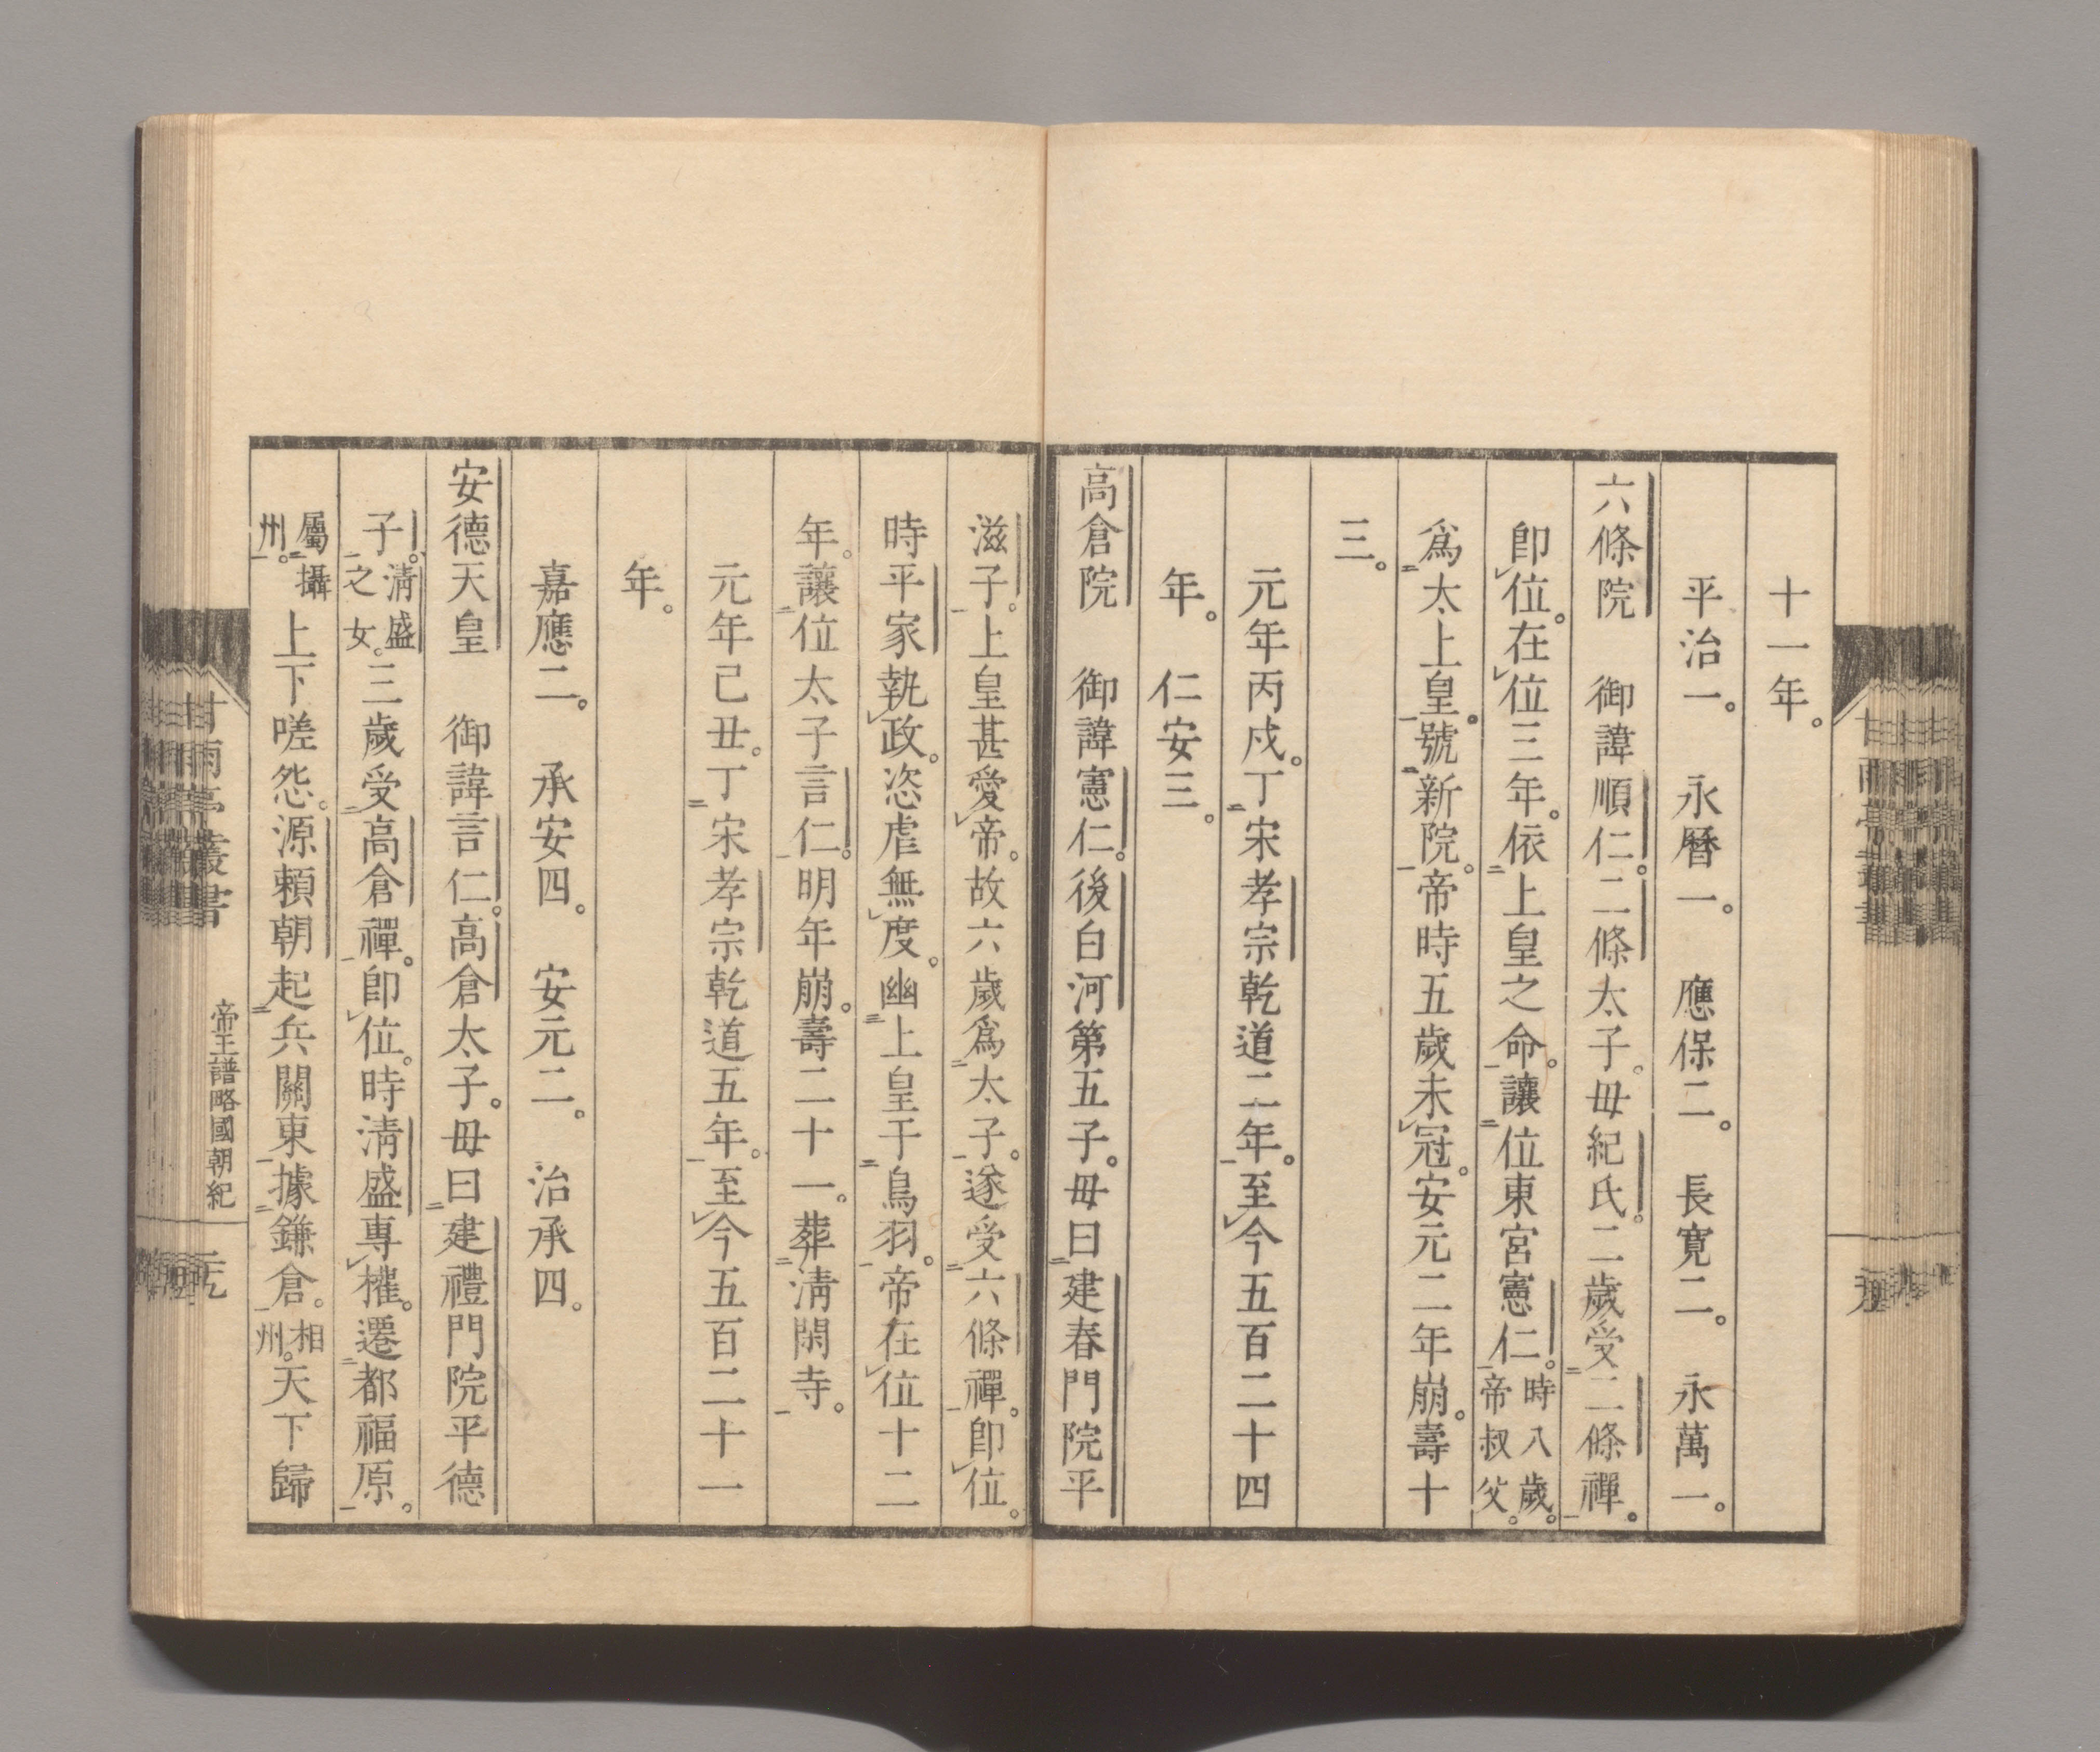 十一年。
平治一。　永曆一。　應保二。　長寬二。　永萬一。
六條院　御諱順仁。二條太子。母紀氏。二歲受二二條禪一。
卽レ位。在レ位三年。依二上皇之命一。讓二位東宮憲仁一。時八歲。帝叔父。
爲二太上皇一。號二新院一。帝時五歲未レ冠。安元二年崩。壽十
三。
元年丙戌。丁二宋孝宗乾道二年一。至レ今五百二十四
年。　仁安三。
高倉院　御諱憲仁。後白河第五子。母曰二建春門院平
滋子一。上皇甚愛レ帝。故六歲爲二太子一。遂受二六條禪一。卽レ位。
時平家執レ政。恣虐無レ度。幽二上皇于二鳥羽一。帝在レ位十二
年。讓二位太子言仁一。明年崩。壽二十一。葬二淸閑寺一。
元年己丑。丁二宋孝宗乾道五年一。至レ今五百二十一
年。
嘉應二。　承安四。　安元二。　治承四。
安德天皇　御諱言仁。高倉太子。母曰二建禮門院平德
子一。淸盛之女。三歲受二高倉禪一。卽レ位。時淸盛專レ權。遷二都福原一。
屬二攝州一。上下嗟怨。源賴朝起二兵關東一。據二鎌倉一。相州。天下歸
甘雨亭叢書
帝王譜略國朝紀